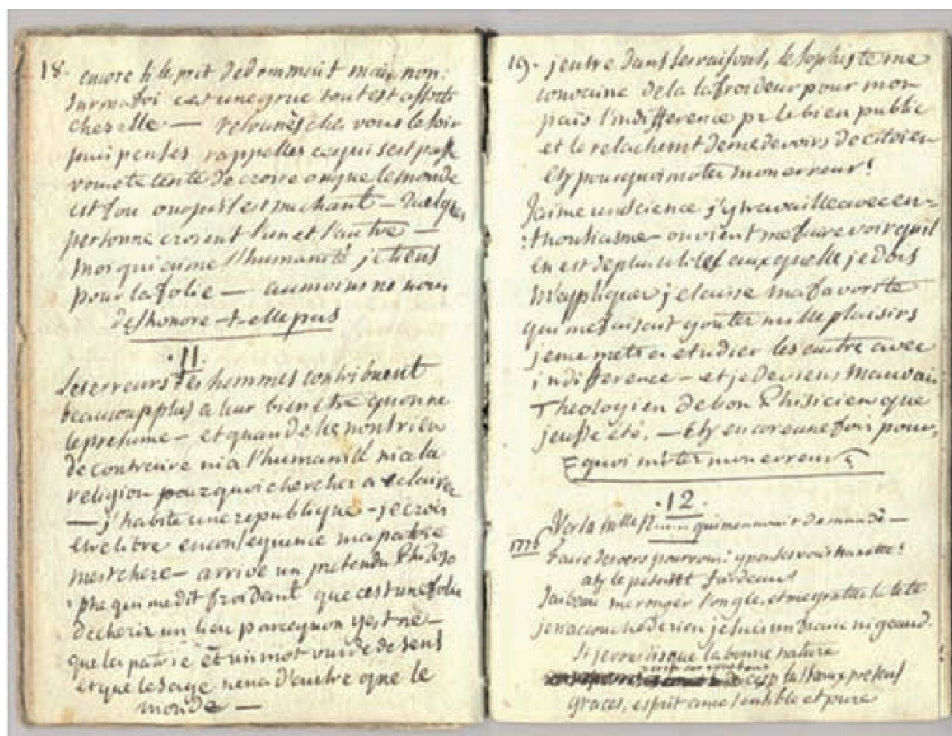 18.
encore si le prit dedommoit mais non:
sur ma foi c'est une grue tout est affecté
chez elle — retournés chez vous le soir
puis pensés rappelles ce qui s'est passé
vous ete tenté de croire ou que le monde
est fou ou qu'il est mechant — Quelques
personne croient l'un et l'autre —
Moi qui aime l'humanité je tiens
pour la folie — au moins ne nous
deshonore-t-elle pas
.11.
Les erreurs des hommes contribuent
beaucoup plus a leur bien etre qu'on ne
le presume — et quand elle n'ont rien
de contraire ni a l'humanité ni a la
religion pourquoi chercher a eclairer
— j'habite une republique — je crois
etre libre en consequence ma patrie
m'est chere — arrive un pretendu Philoso
phe qui me dit froidement que c'est une folie
de cherir un lieu parcequ'on y est né —
que la patrie est un mot vuide de sens
et que le sage n'en a d'autre que le
monde —
19. j'entre dans ses raisons, le sophiste me
convainc de la la froideur pour mon
païs l'indifference pr le bien public
et le relachemt de me devoirs de citoien
Eh pourquoi m'oter mon erreur!
J'aime une science j'y travaille avec en-
:thousiasme — on vient me faire voir qu'il
en est de plus utiles auxquelle je dois
m'appliquer je laisse ma favorite
qui me faisait gouter mille plaisirs
je me mets a etudier les autre avec
indifference — et je deviens mauvais
Theologien de bon Phisicien que
j'eusse été. — Eh encore une fois pour,
quoi m'oter mon erreur
.12.
qui m'en avoit demandé —
1778
Faire des vers pour vous! y pensés vous Nanette!
ah le pesant fardeau!
J'ai beau me ronger l'ongle, et me grater la tete
je n'accouche de rien je suis un franc nigeaud.
Si je vous disois que la bonne nature
graces, esprit ame sensible et pure